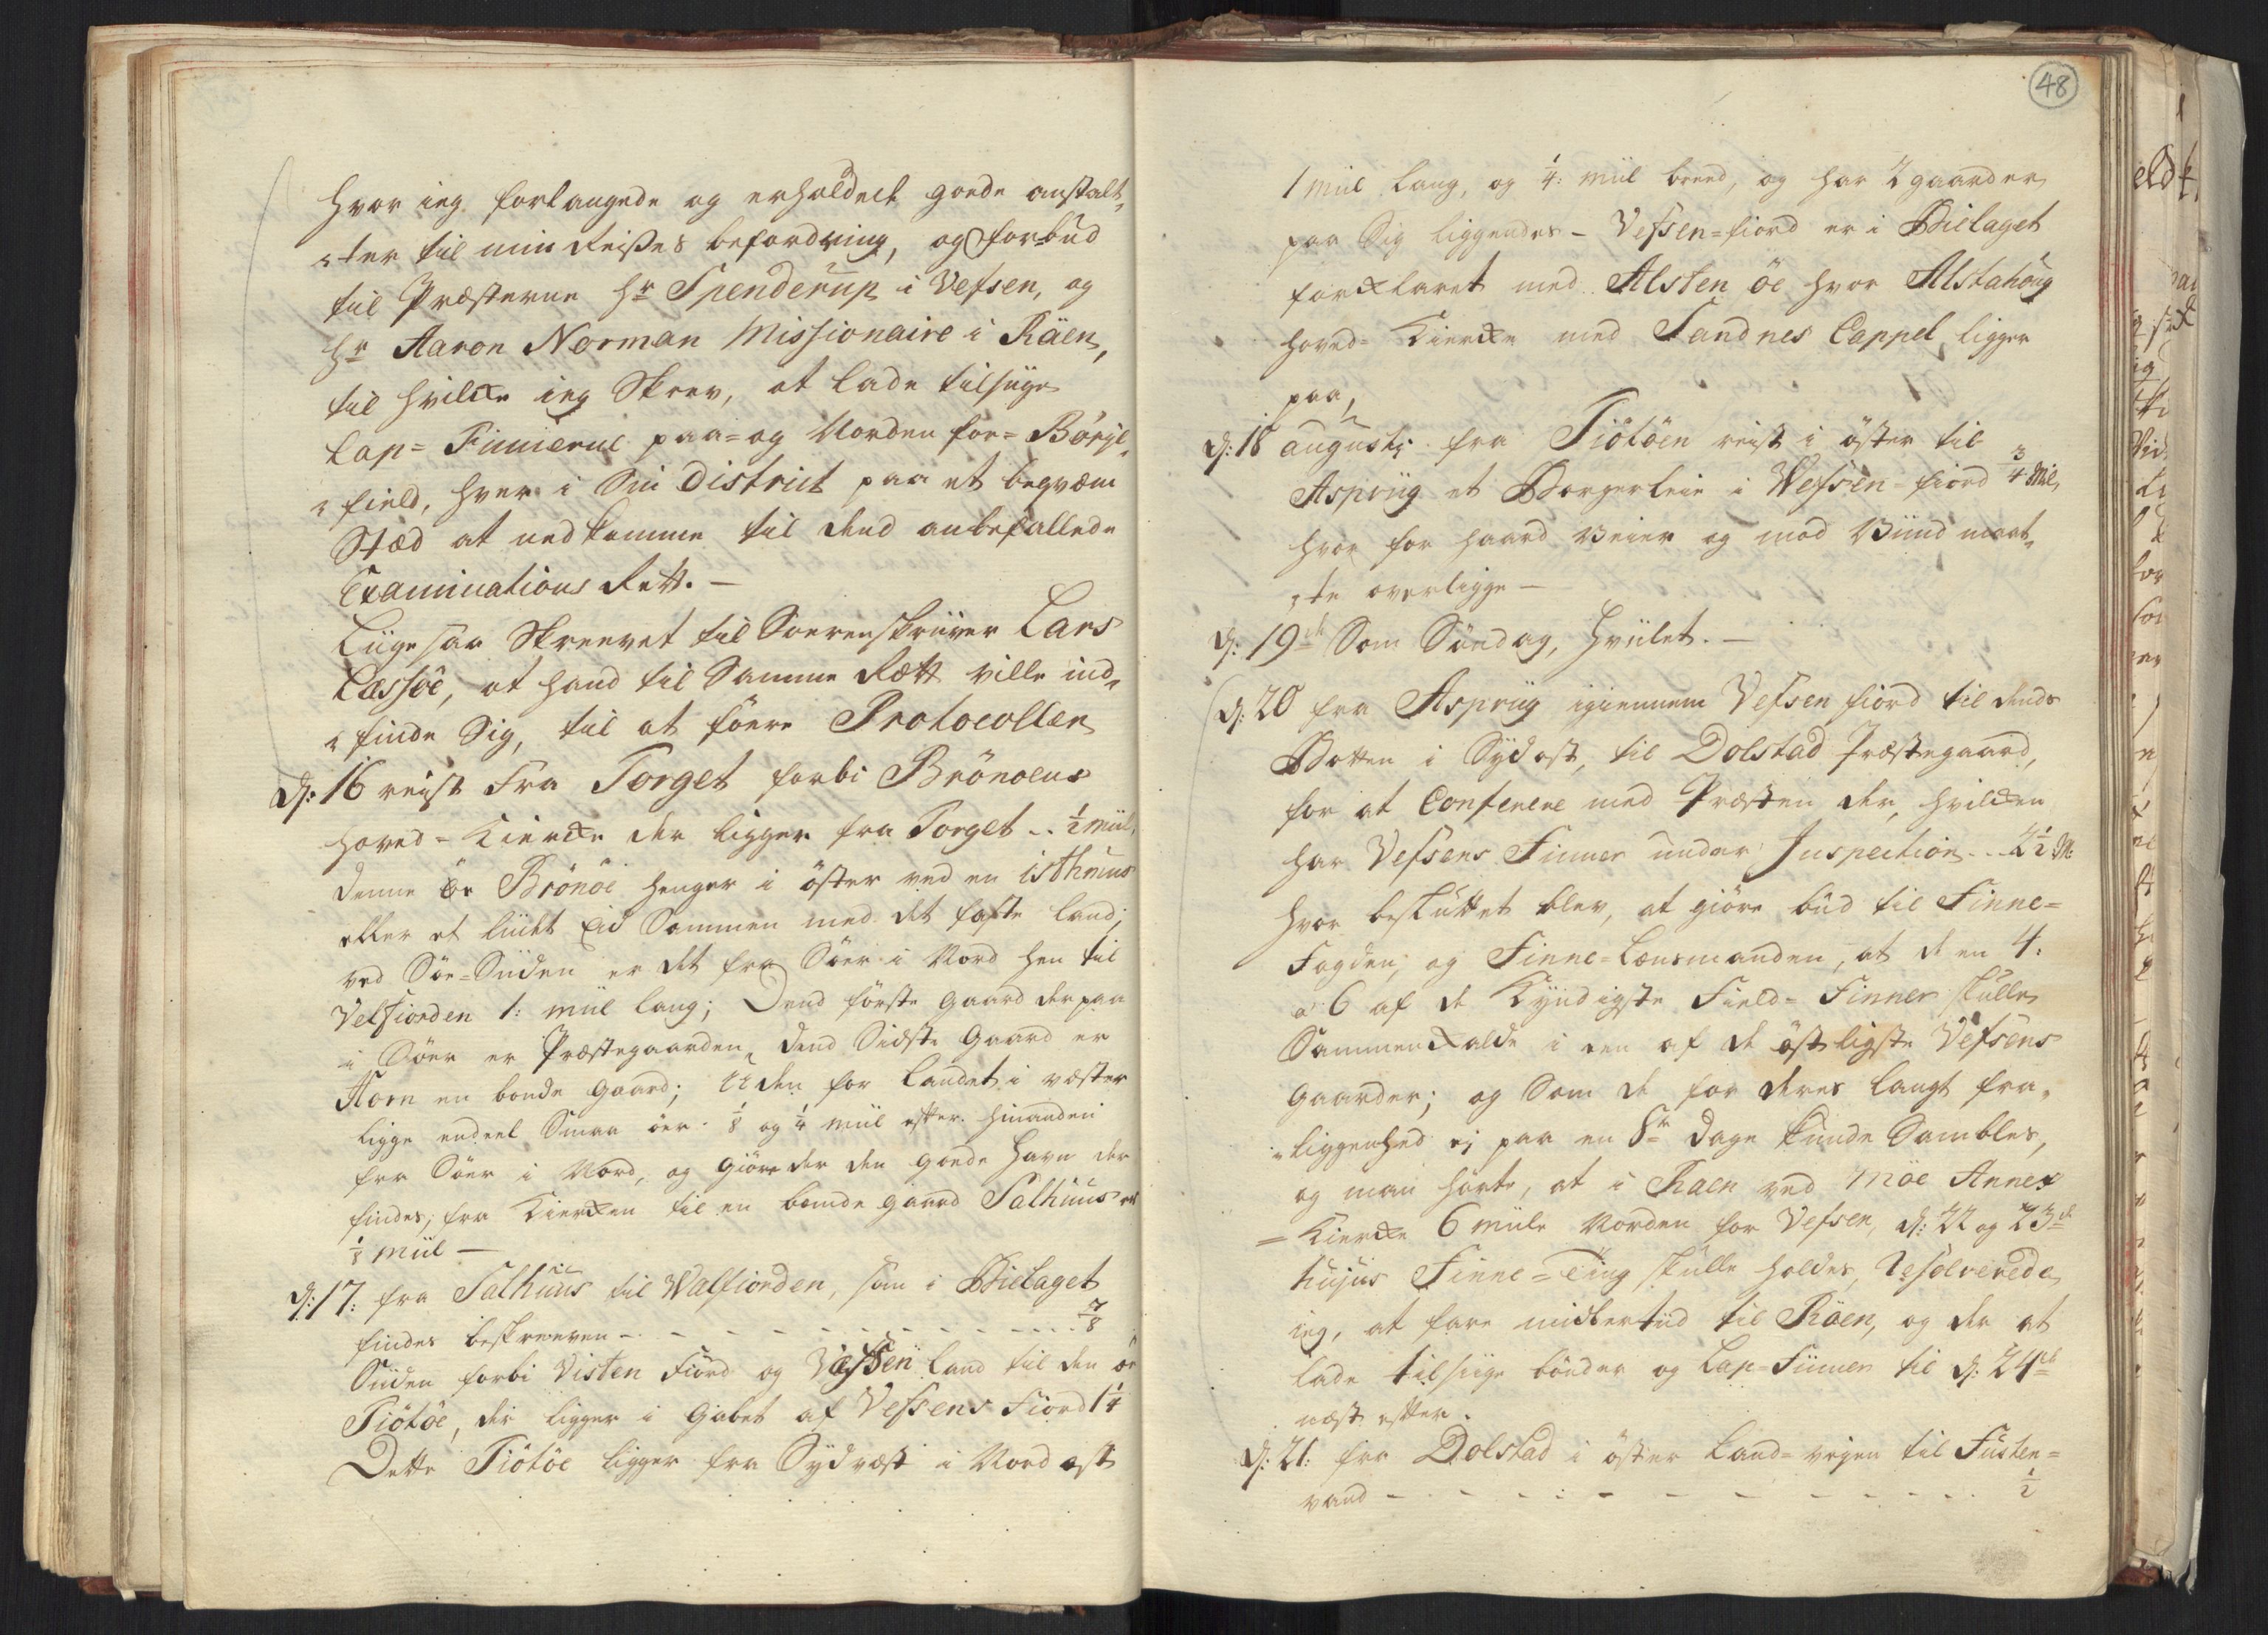 hvor ieg forlangede og erholdedt goede anstalt„
„ter til min Reises befordring, og forbud
til Præsterne Hr Spenderup i Vefsen, og
Hr Aaron Norman Missionaire i Räen,
til hvilcke ieg Skrev, at lade tilsiige
Lap=Finnerne paa= og Norden for=Börge„
„field, hver i Sin District paa et beqvæm
Stæd at nedkomme til dend anbefallede
Examinations Rett. —
Liige saa Skreevet til Soerenskriiver Lars
Læssöe, at hand til Samme Rætt ville ind„
„finde Sig, til at föere Protocollen
D: 16 reist Fra Torget forbi Brönoens
hoved=Kiercke der ligger fra Torget .. ½ miil,
denne Öe Brönöe henger i öster ved en isthmus
eller et liidet Eid Sammen med det faste land;
ved Söe=Siiden er det fra Söer i Nord hen til
Velfiorden 1: miil lang; Dend förste gaard der paa
i Söer er Præstegaarden, dend Sidste Gaard er
Horn en bonde gaard; Uden for Landet i væster
ligge endeel Smaa öer ⅛ og ¼ miil efter hinanden
fra Söer i Nord, og giöre der den goede Havn der
findes; fra Kiercken til en bonde gaard Salhuus er
⅛ miil —
D: 17: fra Salhuus til Walfiorden, som i Bielaget
findes beskreeven - - - - - - - - ⅞
Siiden forbi Visten Fiord og Vefsen land til den öe
Tiötöe, der ligger i Gabet af Vefsens Fiord 1¼
Dette Tiötöe ligger fra Sydvæst i Nordost
48
1 miil lang, og ¼: miil breed, og har 2 gaarder
paa Sig liggendes - Vefsen=fiord er i Bielaget
forklaret med Alsten öe hvor Alstahoug
hoved=Kiercke med Sandnes Cappel ligger
paa,
D: 18 augusti fra Tiötöen reist i öster til
Aspriig et Borgerleie i Wefsen=fiord ¾ Mil,
hvor for haard Veier og mod Viind maat„
„te overligge —
D: 19de Som Söndag, hviilet. —
D: 20 fra Aspriig igiennem Vefsen fiord til dends
Botten i Sydost, til Dolstad Præstegaard,
for at Conferere med Præsten der, hvilcken
har Vefsens Finner under Inspection .. 2½ M:
hvor besluttet blev, at giöre bud til Finne=
Fogden, og Finne=Lænsmanden, at de en 4:
a 6 af de Kyndigste Field=Finner skulle
Sammenkalde i een af de östligste Vefsens
Gaarder; og Som de for deres langt fra„
„liggenhed ej paa en 8te dage kunde Sambles,
og man hörte, at i Raen ved Möe Annex
=Kiercke 6 miile Norden for Vefsen, d: 22 og 23de
hujus Finne=Ting skulle holdes, Resolverede
ieg, at fare midlertiid til Räen, og der at
lade tilsiige bönder og Lap=Finner til d: 24de
næst efter.
D: 21: fra Dolstad i öster Land=vejen til Fusten=
vand - - - - - - - - - - ½